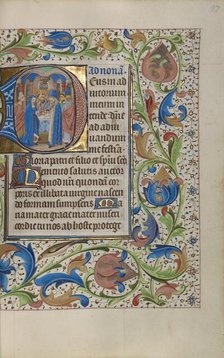 ad nona.
Eus in ad
iutorium
meum in
tende. Dne
ad adiu
uandum
me festi
loria patri et filio et spiri sco
emento salutis auctor
Quod nri quondam cor
poris ex illibata virgine nascen
do formam sumpseris Ma
ria mater gracie mater miseri
cordie tu nos ab hoste protege